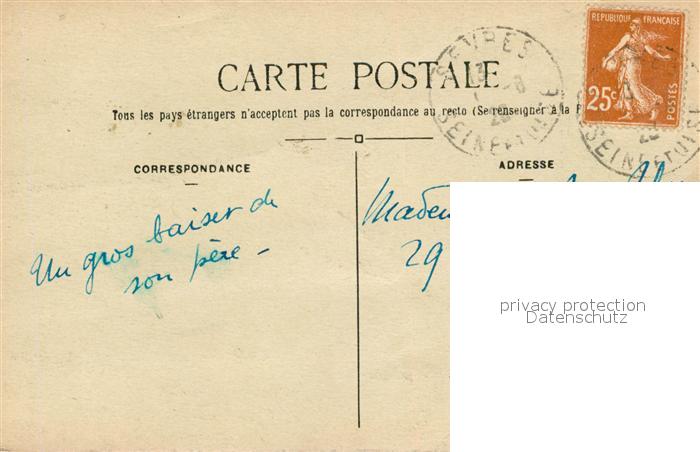 REPUBLIQUE FRANÇAISE
25c
POSTES
SEVRES
SEINE ET OISE
CARTE POSTALE
Tous les pays étrangers n'acceptent pas la correspondance au recto (Se renseigner à la
CORRESPONDANCE
ADRESSE
Un gros baiser de
son père –
29
privacy protection
Datenschutz